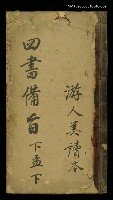 四書備旨下孟下
游人美讀本